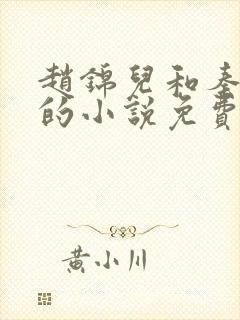 趙錦兒和秦
的小說免費
黃小川